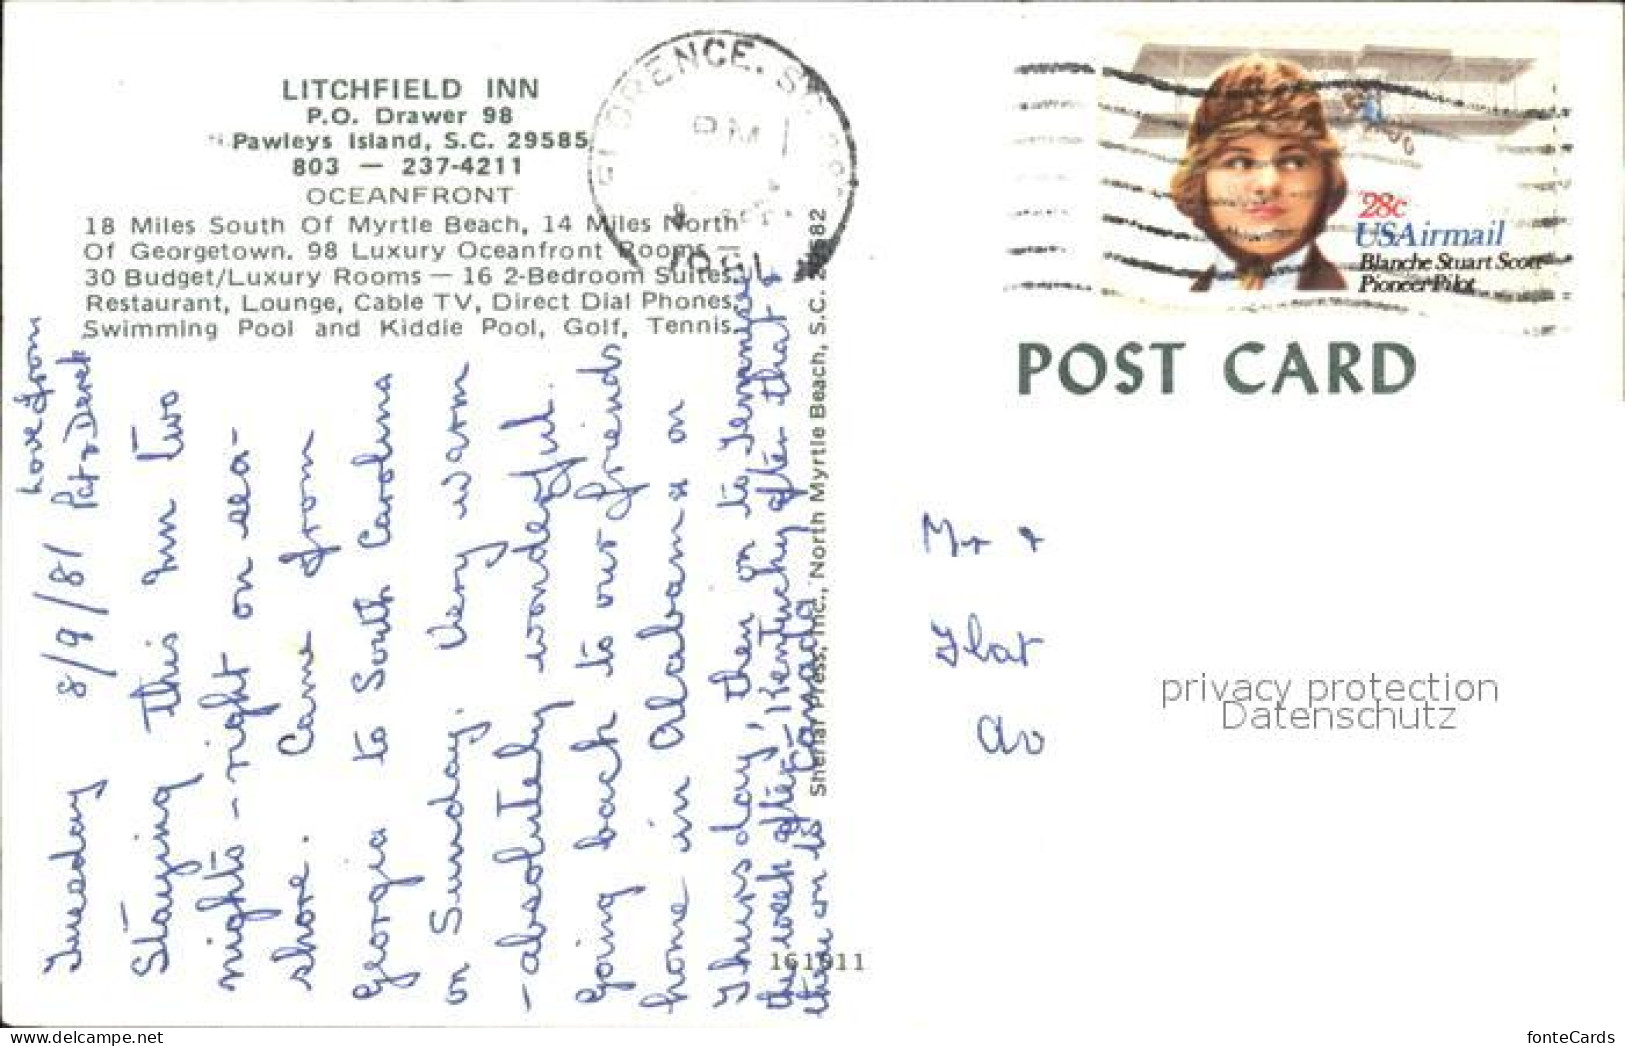 LITCHFIELD INN
P.O. Drawer 98
Pawleys Island, S.C. 29585
803 — 237-4211
OCEANFRONT
18 Miles South Of Myrtle Beach, 14 Miles North
Of Georgetown. 98 Luxury Oceanfront Rooms —
30 Budget/Luxury Rooms — 16 2-Bedroom Suites.
Restaurant, Lounge, Cable TV, Direct Dial Phones,
Swimming Pool and Kiddie Pool, Golf, Tennis.
FLORENCE, S.C.
PM
1981
28c
USAirmail
Blanche Stuart Scott
Pioneer Pilot
POST CARD
Love from
Pat & Derek
Tuesday 8/9/81
Staying this Inn two
nights - right on sea-
shore. Came from
Georgia to South Carolina
on Sunday. Very warm
- absolutely wonderful.
Going back to our friends
home in Alabama on
Thursday, then on to Tennessee
the week after, Kentucky after that &
then on to Canada
Sheriar Press, Inc., North Myrtle Beach, S.C. 29582
161911
Mr &
Flat
Av
privacy protection
Datenschutz
www.delcampe.net
fonteCards